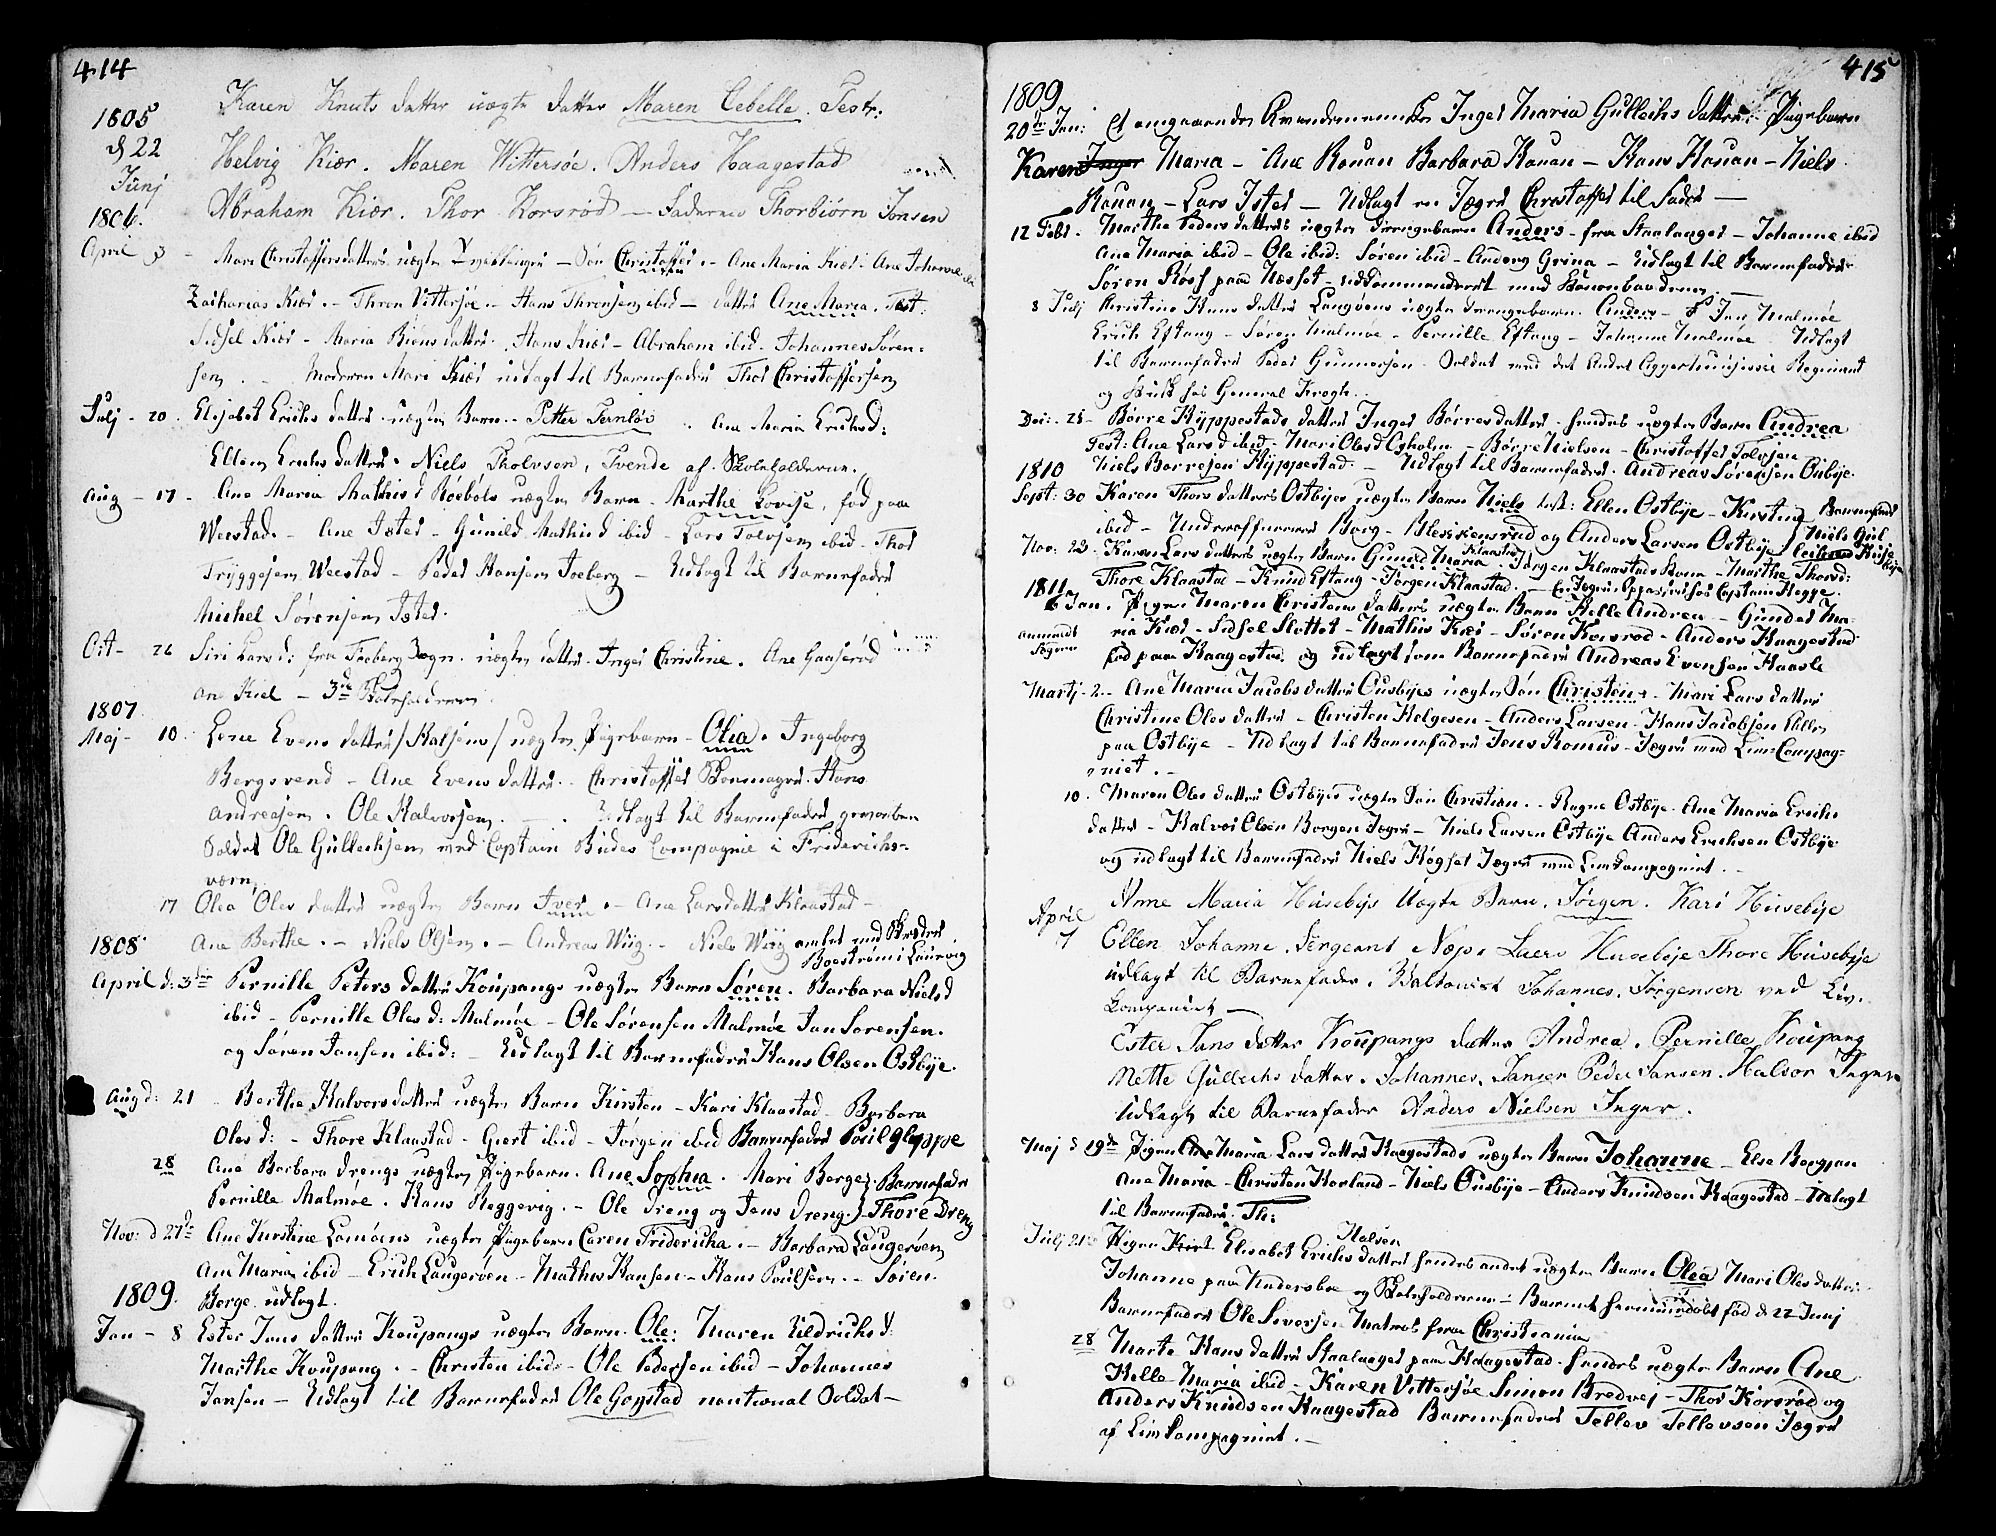 414
1805
d 22
Junj
Karen Knuts datter uægte datter Maren Cebelle. Testr:
Helvig Kiær. Maren Wittersøe. Anders Haagestad
Abraham Kiær. Thor Korsrød — Faderen Thorbiörn Jonsen
1806.
April 3 - Mari Christoffersdatters uægte Tvillinger — Søn Christoffer. - Ane Maria Kiær - Ane Johanne
Zacharias Kiær. - Thron Vittersøe - Hans Thronsen ibid — datter Ane Maria. Test.
Sidsel Kiær - Maria Biørnsdatter. Hans Kiær - Abraham ibid. Johannes Søren-
sen. - Moderen Mari Kiær udlagt til Barnefader Thor Christoffersen
Julj - 20. Elisabet Erichs datters uægte Barn - Petter Fernløv .. Ane Maria Erichsd:
Ellen Erichs datter. Niels Tholvsen, Tvende af Skoleholderne.
Aug - 17 - Ane Maria Mathisd Röebøls uægte Barn - Marthe Lovise, fød paa
Weestad. - Ane Istre - Gunild Mathisd ibid - Lars Tolvsen ibid - Thor
Tryggesen Weestad - Peder Hansen Foeberg — Udlagt til Barnefader
Michel Sørensen Istre.
Oct - 26 Siri Larsd: fra Foeberg Sogn. uægte datter - Inger Christine. Ane Gaaserød
an Kiel - 3de Skoleholderen.
1807
Maj - 10. Lene Evens datters /Halsens/ uægte Pigebarn - Olia. Ingeborg
Bergsvend - Ane Evens datter. - Christoffer Skomager. Hans
Andreasen. Ole Halvorsen. — . Udlagt til Barnefader geworben
Soldat Ole Gulleichsen ved Captain Budes Compagnie i Friderichs-
værn.
17 Olea Oles datters uægte Barn Iver. - Ane Larsdatter Klaastad -
Ane Berthe. - Niels Olsen. - Andreas Wiig. - Niels Wiig
1808
April d: 3die Pernille Peters datters Koupangs uægte Barn Søren. Barbara Nielsd
ibid - Pernille Olesd: Malmøe - Ole Sørensen Malmøe Jan Sørensen.
og Søren Jansen ibid: - Udlagt til Barnefader Hans Olsen Ostbye.
Aug d: 21 - Berthe Halvorsdatters uægte Barn Kirsten - Kari Klaastad - Barbara
Olesd: - Thore Klaastad - Giert ibid - Jørgen ibid Barnefader Poul Gloppe
28 Ane Barbara Drengs uægte Pigebarn. Ane Sophia. Mari Berge. Barnefader
Pernille Malmøe. Hans Reggevig. - Ole Dreng og Jens Dreng. Thore Dreng
Nov: d 27de Ane Kirstine Lamøens uægte Pigebarn Caren Fridericha. - Barbara Laugerøen
Ane Maria ibid - Erich Laugerøen - Mathis Hansen - Hans Poulsen. - Søren
Berge udlagt.
1809.
Jan - 8 Ester Jans datters Koupangs uægte Barn. Ole: Maren Eldrichs d:
Marthe Koupang. - Christen ibid - Ole Pedersen ibid - Johannes
Jansen - Udlagt til Barnefader Ole Gogstad nantional Soldat -
415
1809
20de Jan: Et omgaaende Qvindemenneske Inger Maria Gulleichs datters Pigebarn
Karen Maria - Ane Kouan Barbara Kouan - Hans Kouan - Niels
Kouan - Lars Istre - Udlagt en Jæger Christoffer til Fader —
12 Febr. Marthe Peders datters uægte Drengebarn Anders - fra Staalaager - Johanne ibid
Ane Maria ibid - Ole ibid: Søren ibid - Anders Grina - Udlagt til Barnefader
Søren Røst paa Næsset - udkommanderet med Kanonbaadene. —
8 Julj Christine Hans datters Langøens uægte Drengebarn. Anders - Jan Malmøe
Erich Eftang - Søren Malmøe - Pernille Eftang - Johanne Malmøe. Udlagt
til Barnefader Peder Gunnersen. Soldat med det Andet Aggershuusiske Regiment
og Kudsk hos General Krogh.
Dec: 25 - Børre Hyppestads datter Inger Børresdatter hendes uægte Barn Andrea
Test: Ane Larsd ibid - Mari Olesd Espholm - Børre Nielsen - Christoffer Tolvsen
Niels Børresen Hyppestad. - Udlagt til Barnefader. Andreas Sørensen Ousbye
1810
Sept: 30 Karen Thors datters Ostbyes uægte Barn Niels test: Ellen Ostbye - Kirstine
ibid - Underofficerer Borg - Bleskensrud og Anders Larsen Ostbye
Nov: 23. Karen Lars datters uægte Barn Gunild Maria. Jørgen Klaastads Kone - Marthe Thorsd:
Thore Klaastad - Knud Eftang - Jørgen Klaastad. — En Jæger Oppasser hos Captain Hegge.
1811
6 Jan. Pigen Maren Christens datters uægte Barn Helle Andrea - Gunder Ma-
ria Kiær - Sidsel Slottet - Mathis Kiær - Søren Korsrød - Anders Haagestad
fød paa Haagestad og udlagt som Barnefader Andreas Evensen Haasle
Martj - 2 - Ane Maria Jacobs datters Ousbyes uægte Søn Christen - Mari Lars datter
Christine Oles datter - Christen Helgesen - Anders Larsen - Hans Jacobsen alle
paa Ostbye - Udlagt til Barnefader Jens Romus - Jæger med Liv-Compag-
niet. -
10. Maren Oles datters Ostbyes uægte Søn Christian. - Ragne Ostbye. Ane Maria Erichs
datter - Halvor Olsen Borgen Jæger - Niels Larsen Ostbye Anders Erichsen Ostbye
og udlagt til Barnefader Niels Høgset Jæger med Livkompagniet. -
April 7
Anne Maria Husebys Uægte Barn. Jørgen. Kari Husebye
Ellen Johanne. Sergeant Næps. Laers Husebye Thore Husebye
udlagt til Barnefader. Johannes Jørgensen ved Liv.
Kompaniet —
Ester Jans datter Koupangs datter Andrea. Pernille Koupang
Mette Gullechs datter. Johannes Jansen Peder Jansen. Halvor Inger
Udlagt til Barnefader Anders Nielsen Inger.
Maj d 19de Pigen Ane Maria Lars datters Haagestads uægte Barn Johanne - Else Bergan
Ane Maria - Christen Horland - Niels Ousbye - Anders Knudsen Haagestad - Udlagt
til Barnefader. Th:
Julj 21 Pigen Elisabet Erichs datter Halsen hendes andet uægte Barn Olea Mari Oles datter:
Johanne paa Undersbo og Skoleholderne - Barnet hiemmedøbt fød d 22 Junj
Barnefader Ole Siversen Matros fra Christiania
28 Marte Hans datters Staalaager paa Haagestad hendes uægte Barn Ane
Helle Maria ibid - Karen Vittersøe Simon Bredvej - Thor Korsrød og
Anders Knudsen Haagestad Barnefader Tellev Tellevsen Jæger
af Livkompagniet. -